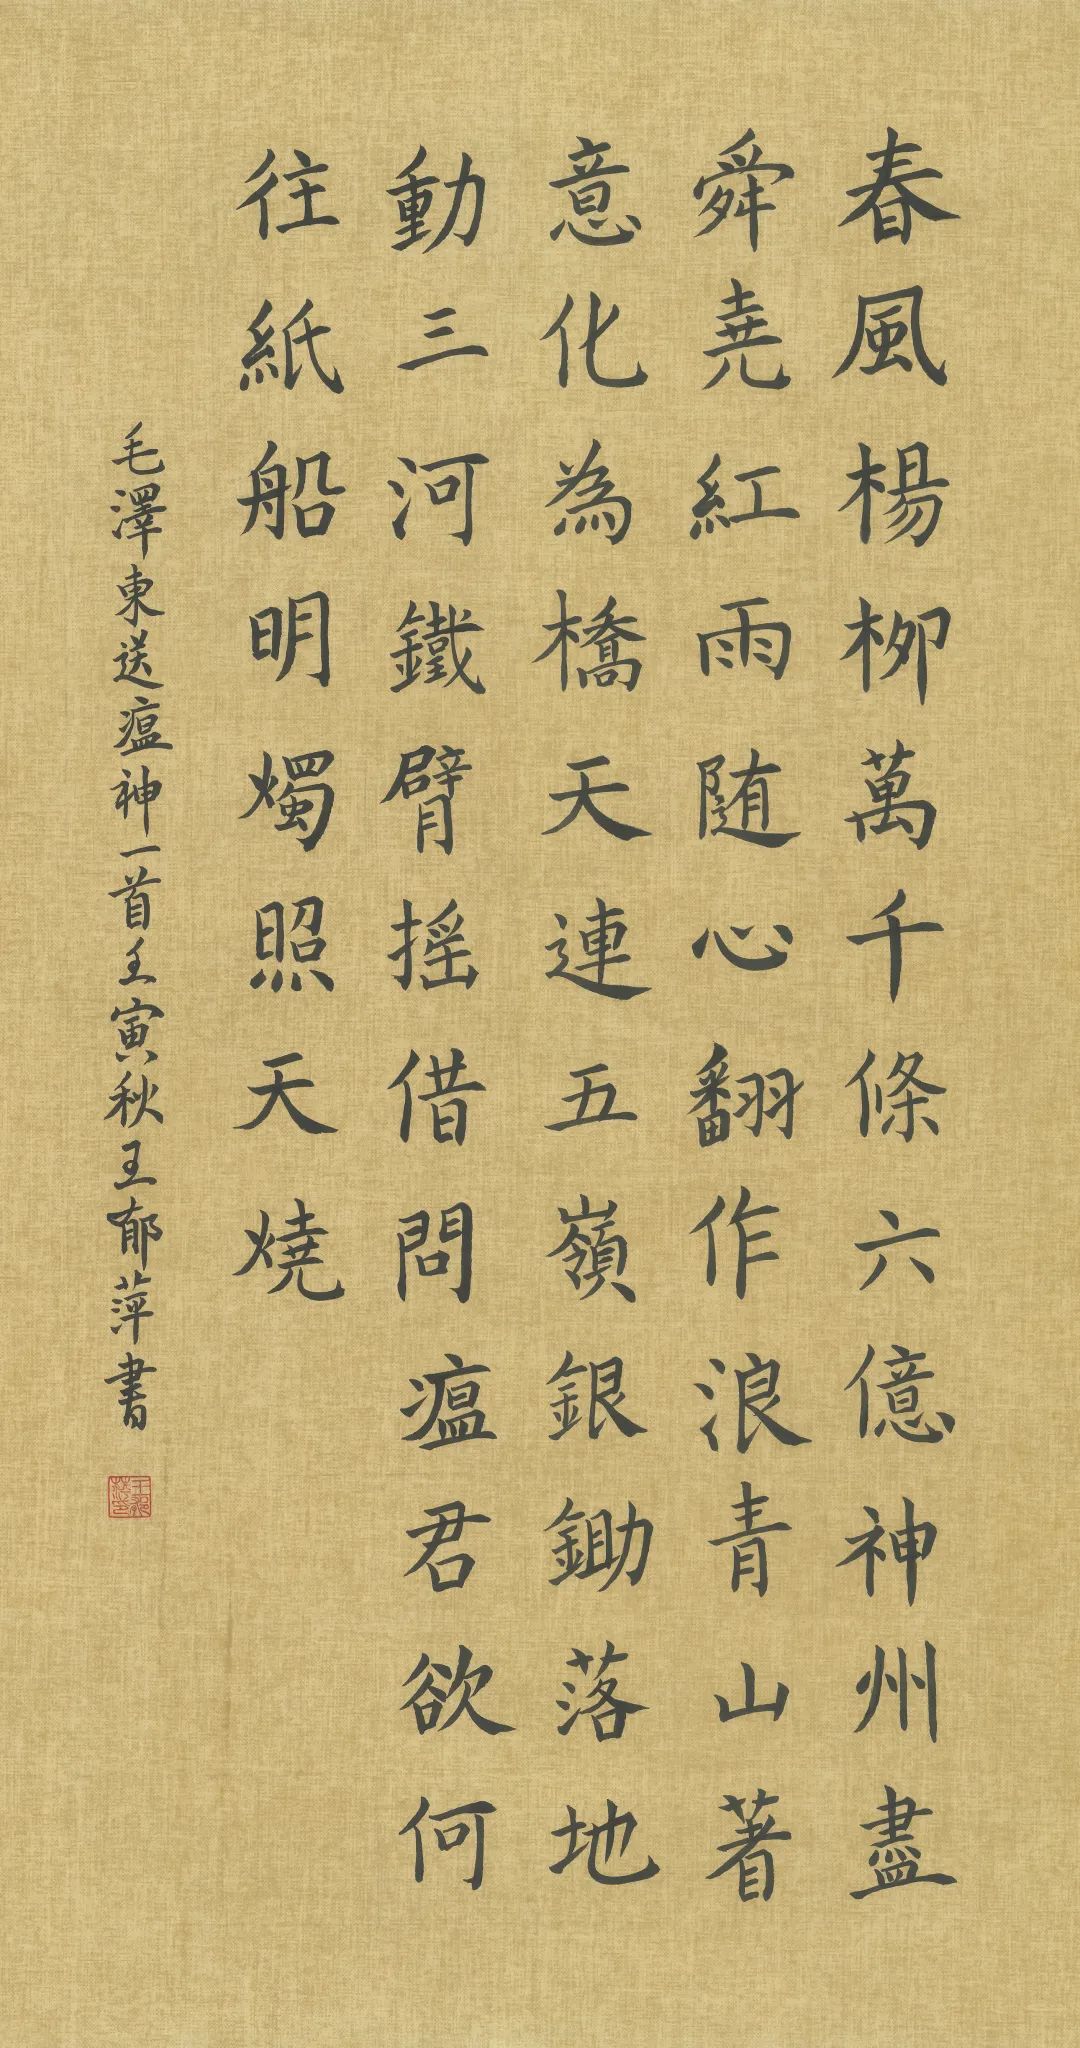 春風楊柳萬千條六億神州盡
舜堯紅雨随心翻作浪青山著
意化為橋天連五嶺銀鋤落地
動三河鐵臂摇借問瘟君欲何
往紙船明燭照天燒
毛澤東送瘟神一首壬寅秋王郁萍書